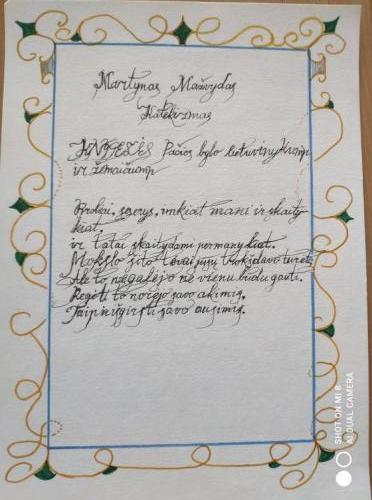 Martynas Mažvydas
Katekizmas
KNIGELĖS Pačios bylo lietuvinykump
ir žemaičiump
Broliai, seserys, imkiat mani ir skaity-
kiat,
ir tatai skaitydami permanykiat.
Mokslo šito tėvai jūsų trokšdavo turėti,
Ale to negalėjo nė vienu būdu gauti.
Regėti to norėjo savo akimis,
Taip ir išgirsti savo ausimis.
SHOT ON MI 8
AI DUAL CAMERA